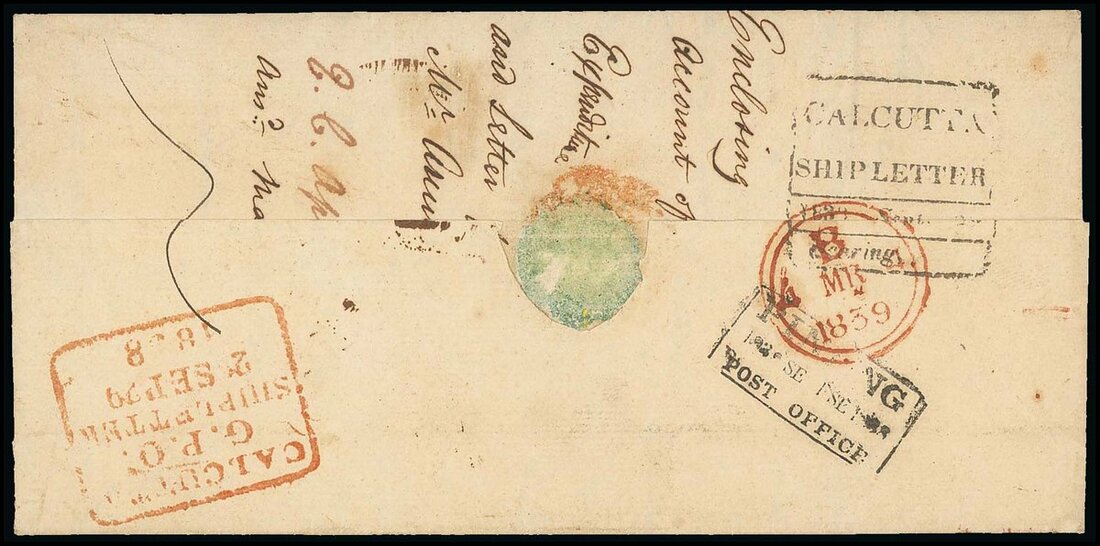 Enclosing
account of
Expenditure
and Letter
Mr
E. C. Ap
ansd Ma
CALCUTTA
SHIP LETTER
Bearing
B
MR
1839
NG
POST OFFICE
CALCUTTA
G.P.O.
SHIPLETTER
2 SEP 29
1838